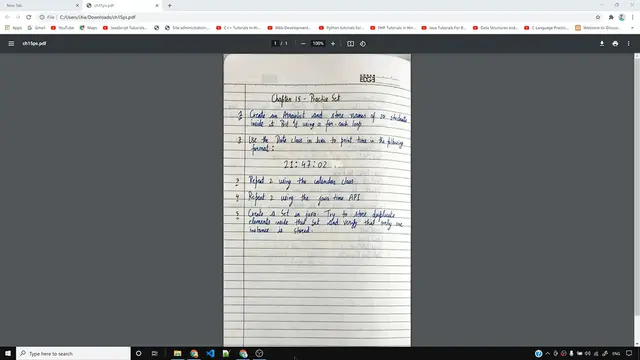 New Tab
ch15ps.pdf
File | C:/Users/Lha/Downloads/ch15ps.pdf
Apps
Gmail
YouTube
Maps
JavaScript Tutorials...
Site administration...
C++ Tutorials In Hi...
Web Development...
Python Tutorials for...
PHP Tutorials In Hi...
Java Tutorials For B...
Data Structures and...
C Language Practic...
Welcome to Discuss...
ch15ps.pdf
1 / 1
100%
Chapter 15 - Practice Set
1 Create an Arraylist and store names of 10 students
inside it. Print it using a for each loop
2 Use the Date class in Java to print time in the following
format:
21:47:02
3 Repeat 2 using the calendar class
4 Repeat 2 using the java time API
5 Create a Set in java. Try to store duplicate
elements inside that Set and verify that only one
instance is stored.
Type here to search
ENG